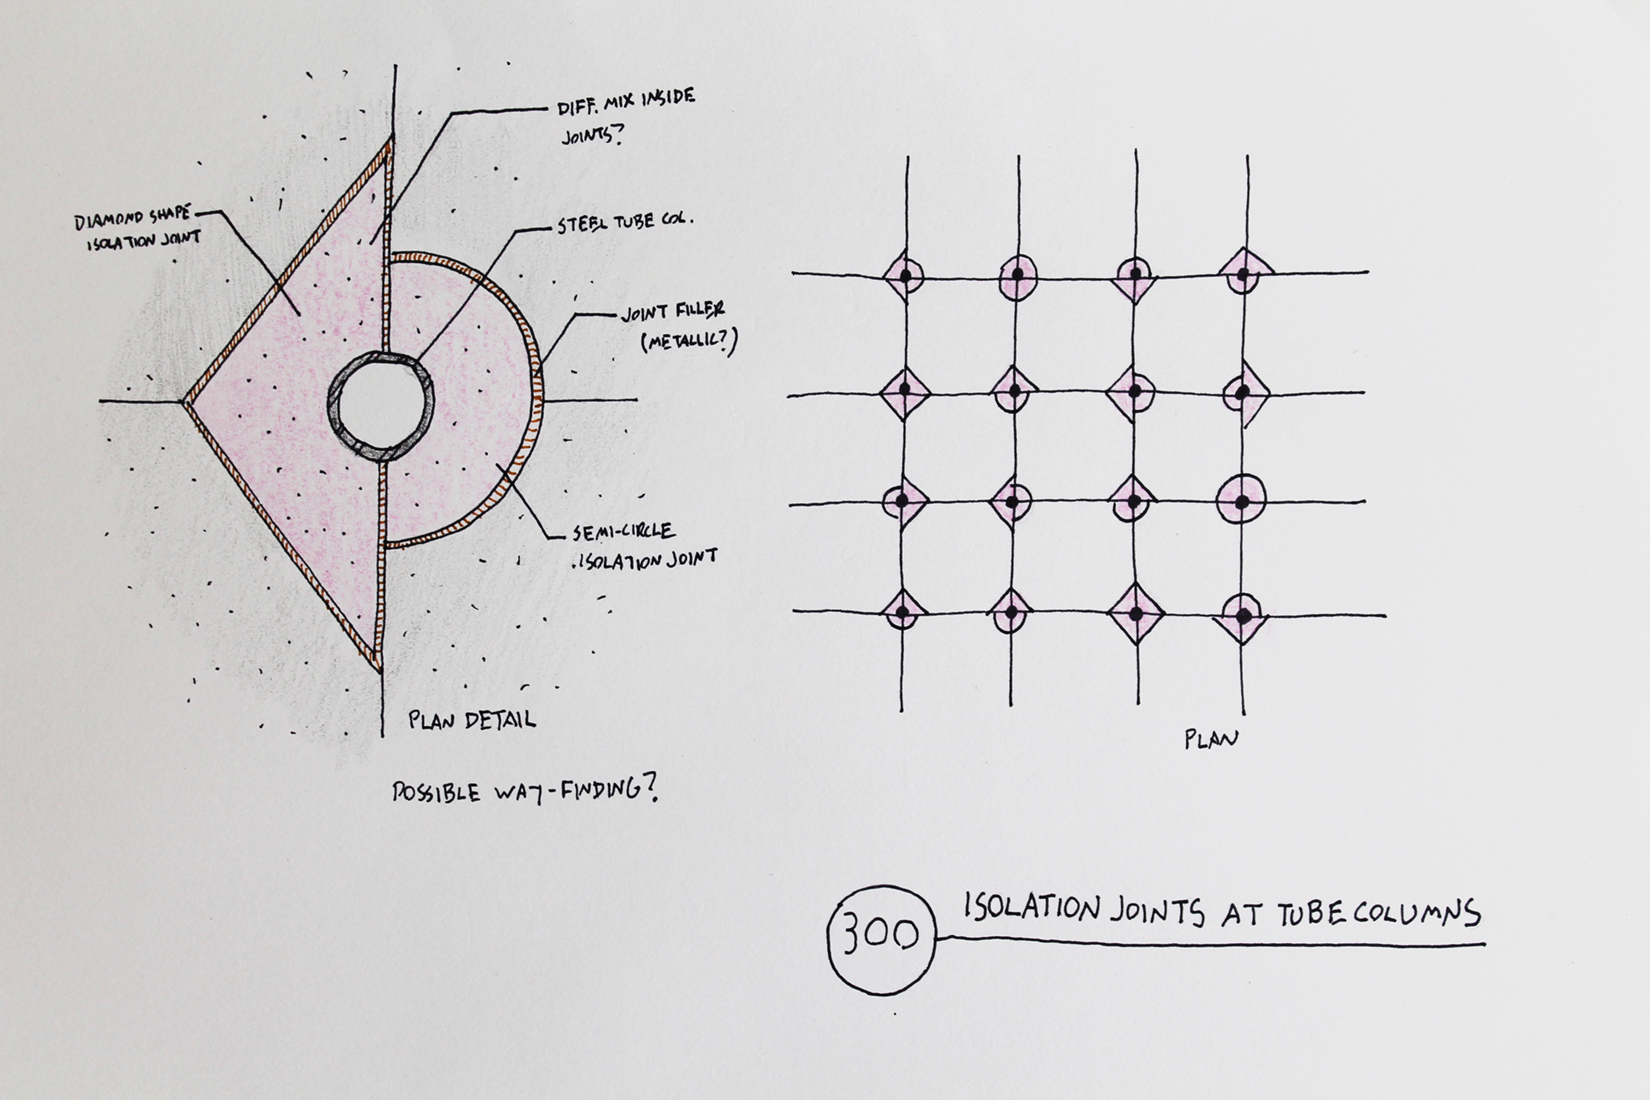 DIFF. MIX INSIDE
JOINTS?
DIAMOND SHAPE
ISOLATION JOINT
STEEL TUBE COL.
JOINT FILLER
(METALLIC?)
SEMI-CIRCLE
ISOLATION JOINT
PLAN DETAIL
POSSIBLE WAY-FINDING?
PLAN
300
ISOLATION JOINTS AT TUBE COLUMNS